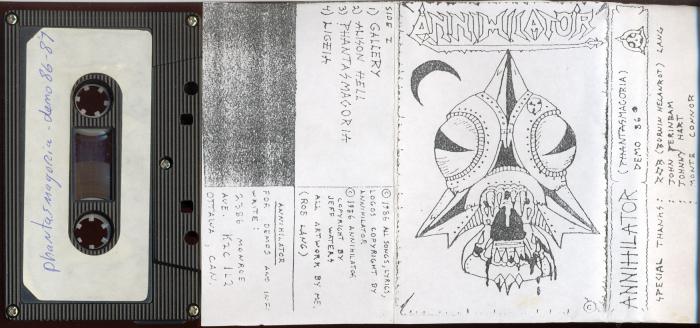 phantasmagoria - demo 86-87
SIDE I
1) GALLERY
2) ALISON HELL
3) PHANTASMAGORIA
4) LIGEIA
© 1986 AL SONGS, LYRICS,
LOGOS COPYRIGHT BY
ANNIHILATOR.
© 1986 ANNIHILATOR
COPYRIGHT BY
JEFF WATERS
ALL ARTWORK BY ME.
(ROB LANG)
ANNIHILATOR
FOR DEMOS AND INFO
WRITE:
2386 MONROE
AVE. K2C 1L2
OTTAWA, CAN.
ANNIHILATOR
©
ANNIHILATOR (PHANTASMAGORIA)
DEMO 86
SPECIAL THANKS: ROB (BURNIN HELANROT) LANG
: JOHN PERINBAM
: JOHNNY HART
: MONTE CONNOR